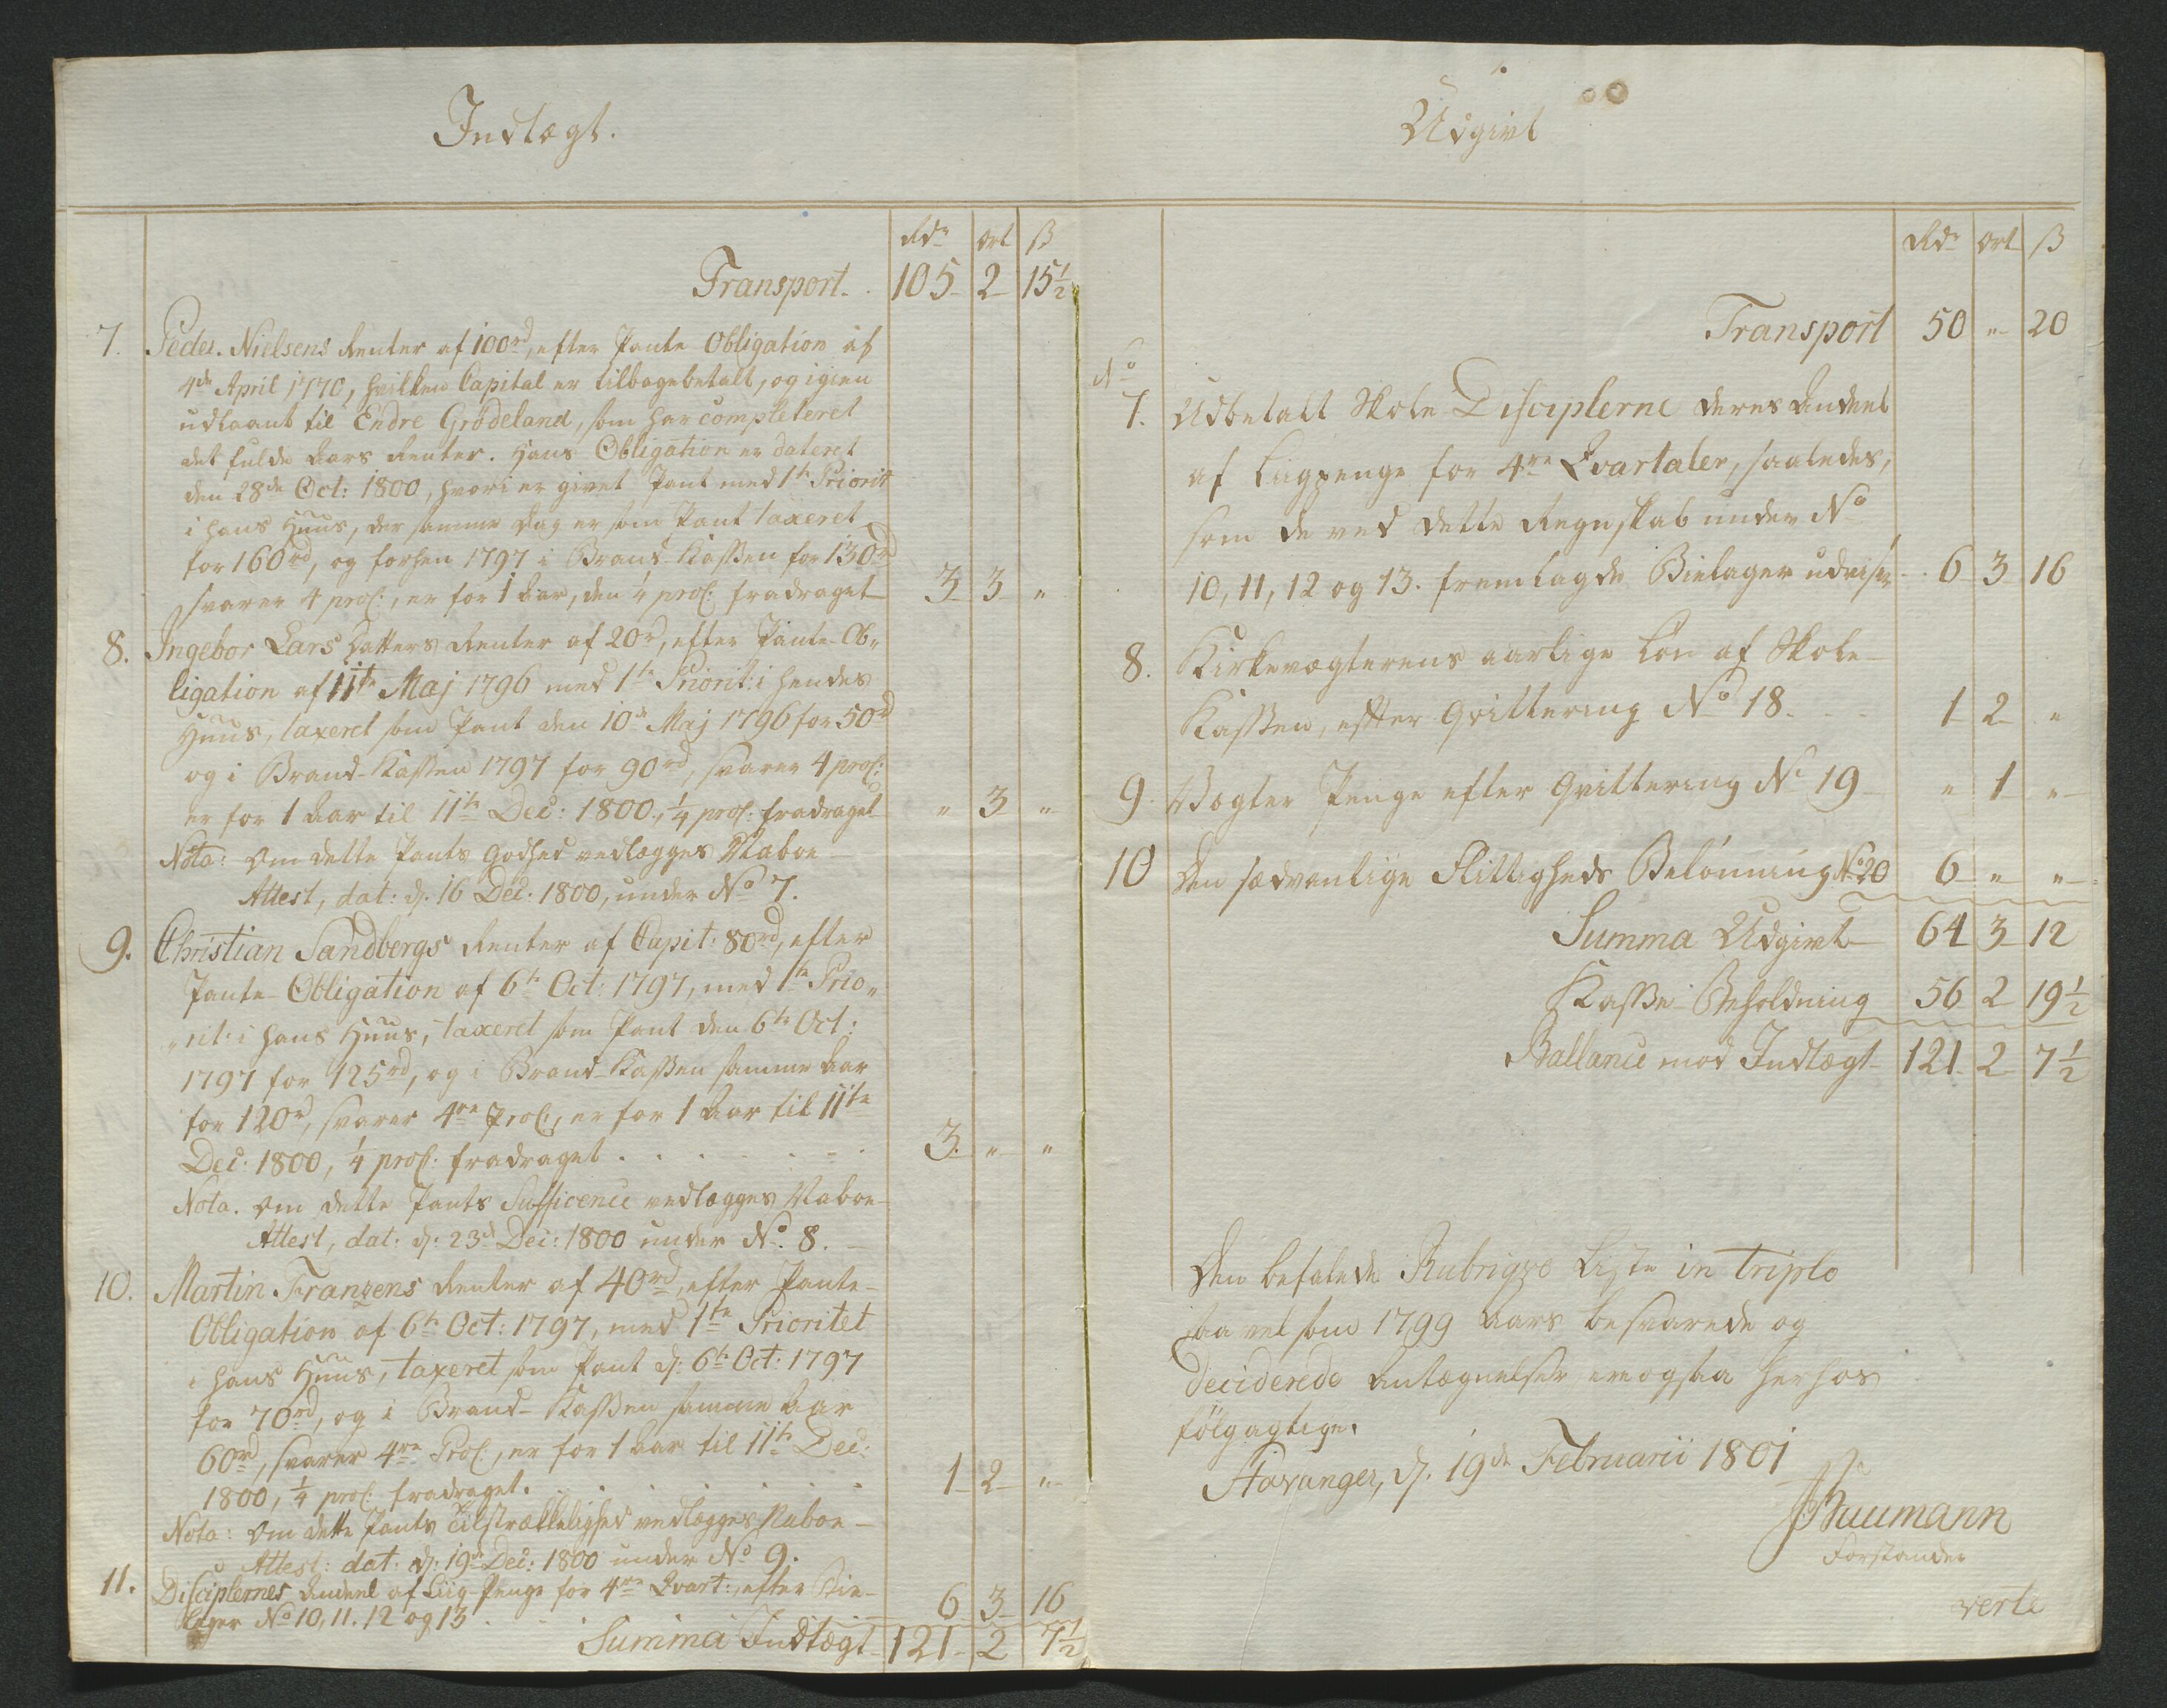 Indtægt.
Rdr ort ß
Transport. 105 2 15½
7. Peder Nielsens Renter af 100rd, efter Pante Obligation af
4de April 1770, hvilken Capital er tilbagebetalt, og igien
udlaant til Endre Grødeland, som har completeret
det fulde Aars Renter. Hans Obligation er dateret
den 28de Oct: 1800, hvori er givet Pant med 1te Priorit
i hans Huus, der samme Dag er som Pant taxeret
for 160rd, og forhen 1797 i Brand-Kassen for 130rd
svarer 4 proC:, er for 1 Aar, den ¼ proC: fradraget 3 3 "
8. Ingebor Lars Datters Renter af 20rd, efter Pante-Ob„
ligation af 11te Maj 1796 med 1te Priorit: i hendes
Huus, taxeret som Pant den 10de Maj 1796 for 50rd
og i Brand-Kassen 1797 for 90rd, svarer 4 proC:
er for 1 Aar til 11te Dec: 1800, ¼ proC: fradraget " 3 "
Nota: Om dette Pants Godhed vedlægges Naboe
Attest, dat: d. 16 Dec: 1800, under No 7.
9. Christian Sandbergs Renter af Capit: 80rd, efter
Pante-Obligation af 6te Oct: 1797, med 1te Prio„
„rit: i hans Huus, taxeret som Pant den 6te Oct:
1797 for 125rd, og i Brand-Kassen samme Aar
for 120rd, svarer 4re ProC:, er for 1 Aar til 11te
Dec: 1800, ¼ proC: fradraget . . . . . . 3. " "
Nota. Om dette Pants Sufficence vedlægges Naboe-
Attest, dat: d: 23d Dec: 1800 under No. 8.
10. Martin Franzens Renter af 40rd, efter Pante-
Obligation af 6te Oct: 1797, med 1te Prioritet
i hans Huus, taxeret som Pant d: 6te Oct: 1797
for 70rd, og i Brand-Kassen samme Aar
60rd, svarer 4re ProC:, er for 1 Aar til 11te Dec:
1800, ¼ proC: fradraget. . . . . . 1 2 "
Nota: Om dette Pants Tilstrækkelighed vedlægges Naboe-
Attest: dat: d: 19de Dec: 1800 under No 9.
11. Disciplernes Andeel af Liig-Penge for 4re Qvart: efter Bie-
lager No 10, 11. 12 og 13 . . . 6 3 16
Summa Indtægt 121 2 7½
Udgivt
Rdr ort ß
Transport 50 " 20
No
7. Udbetalt Skole Disciplerne deres Andeel
af Liigpenge for 4re Qvartaler, saaledes,
som de ved dette Regnskab under No
10, 11, 12 og 13. fremlagde Bielager udviser 6 3 16
8. Kirkevægterens aarlige Løn af Skole-
Kassen, efter Qvittering No 18. 1 2 "
9. Vægter Penge efter Qvittering No 19 " 1 "
10 Den sædvanlige Flittigheds Belønning No 20 6 " "
Summa Udgivt 64 3 12
Kasse-Beholdning 56 2 19½
Ballance mod Indtægt 121 2 7½
Den befalede Rubriqve Liste in triplo
saa vel som 1799 Aars besvarede og
deciderede Antegnelser er ogsaa herhos
følgagtige.
Stavanger, d. 19de Februarii 1801
Buumann
Forstander
verte